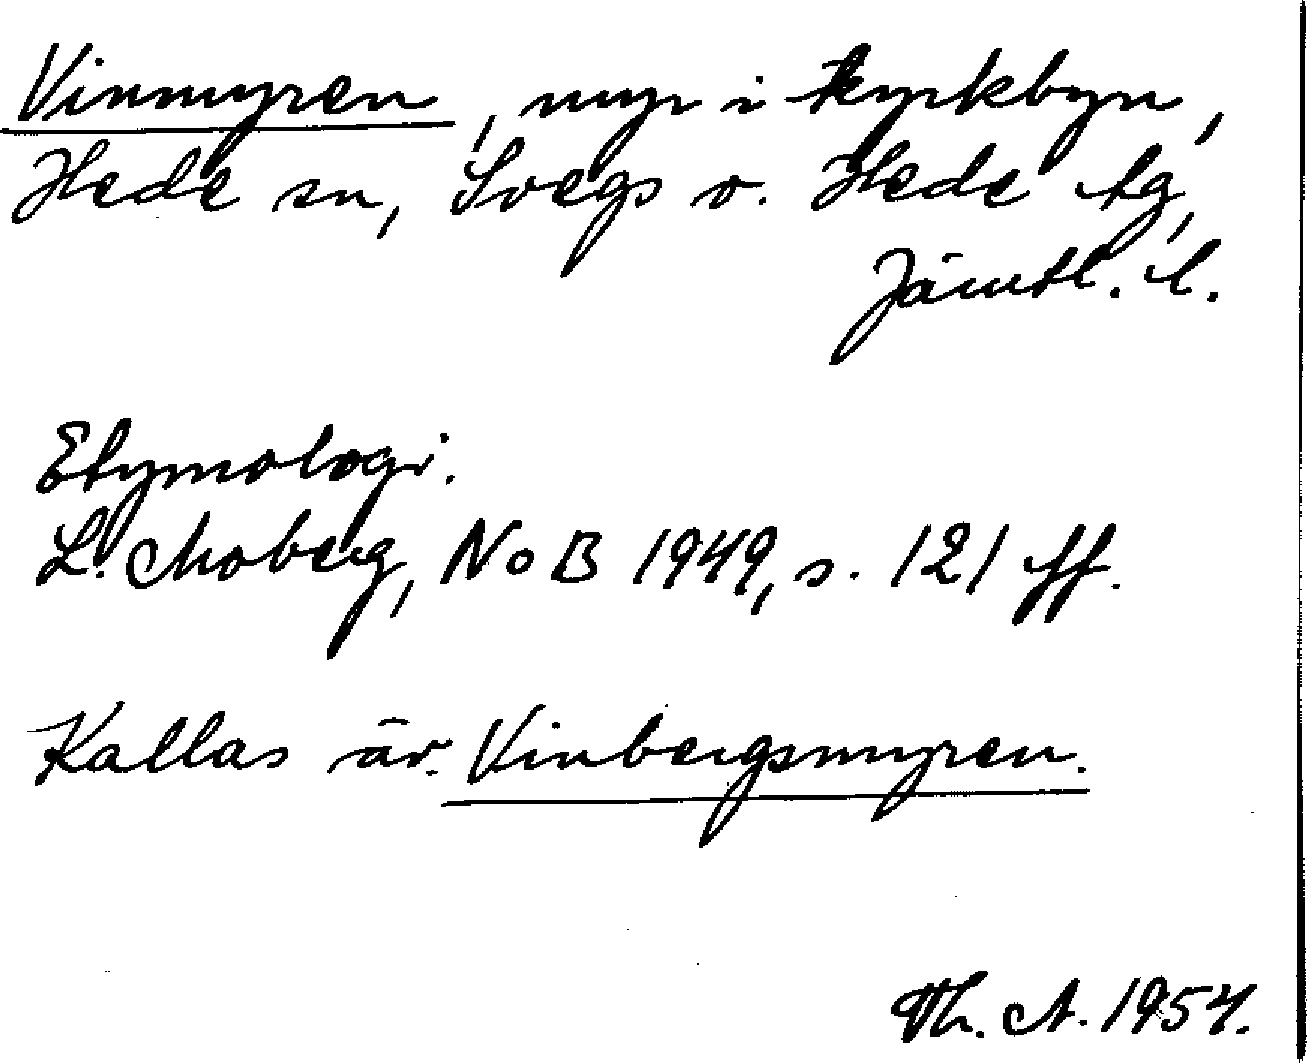 Vinmyren, myr i kyrkbyn,
Hede sn, Svegs o. Hede tg,
Jämtl. l.
Etymologi.
L. Moberg, NoB 1949, s. 121 ff.
Kallas äv. Vinbergsmyren.
Th. A. 1954.